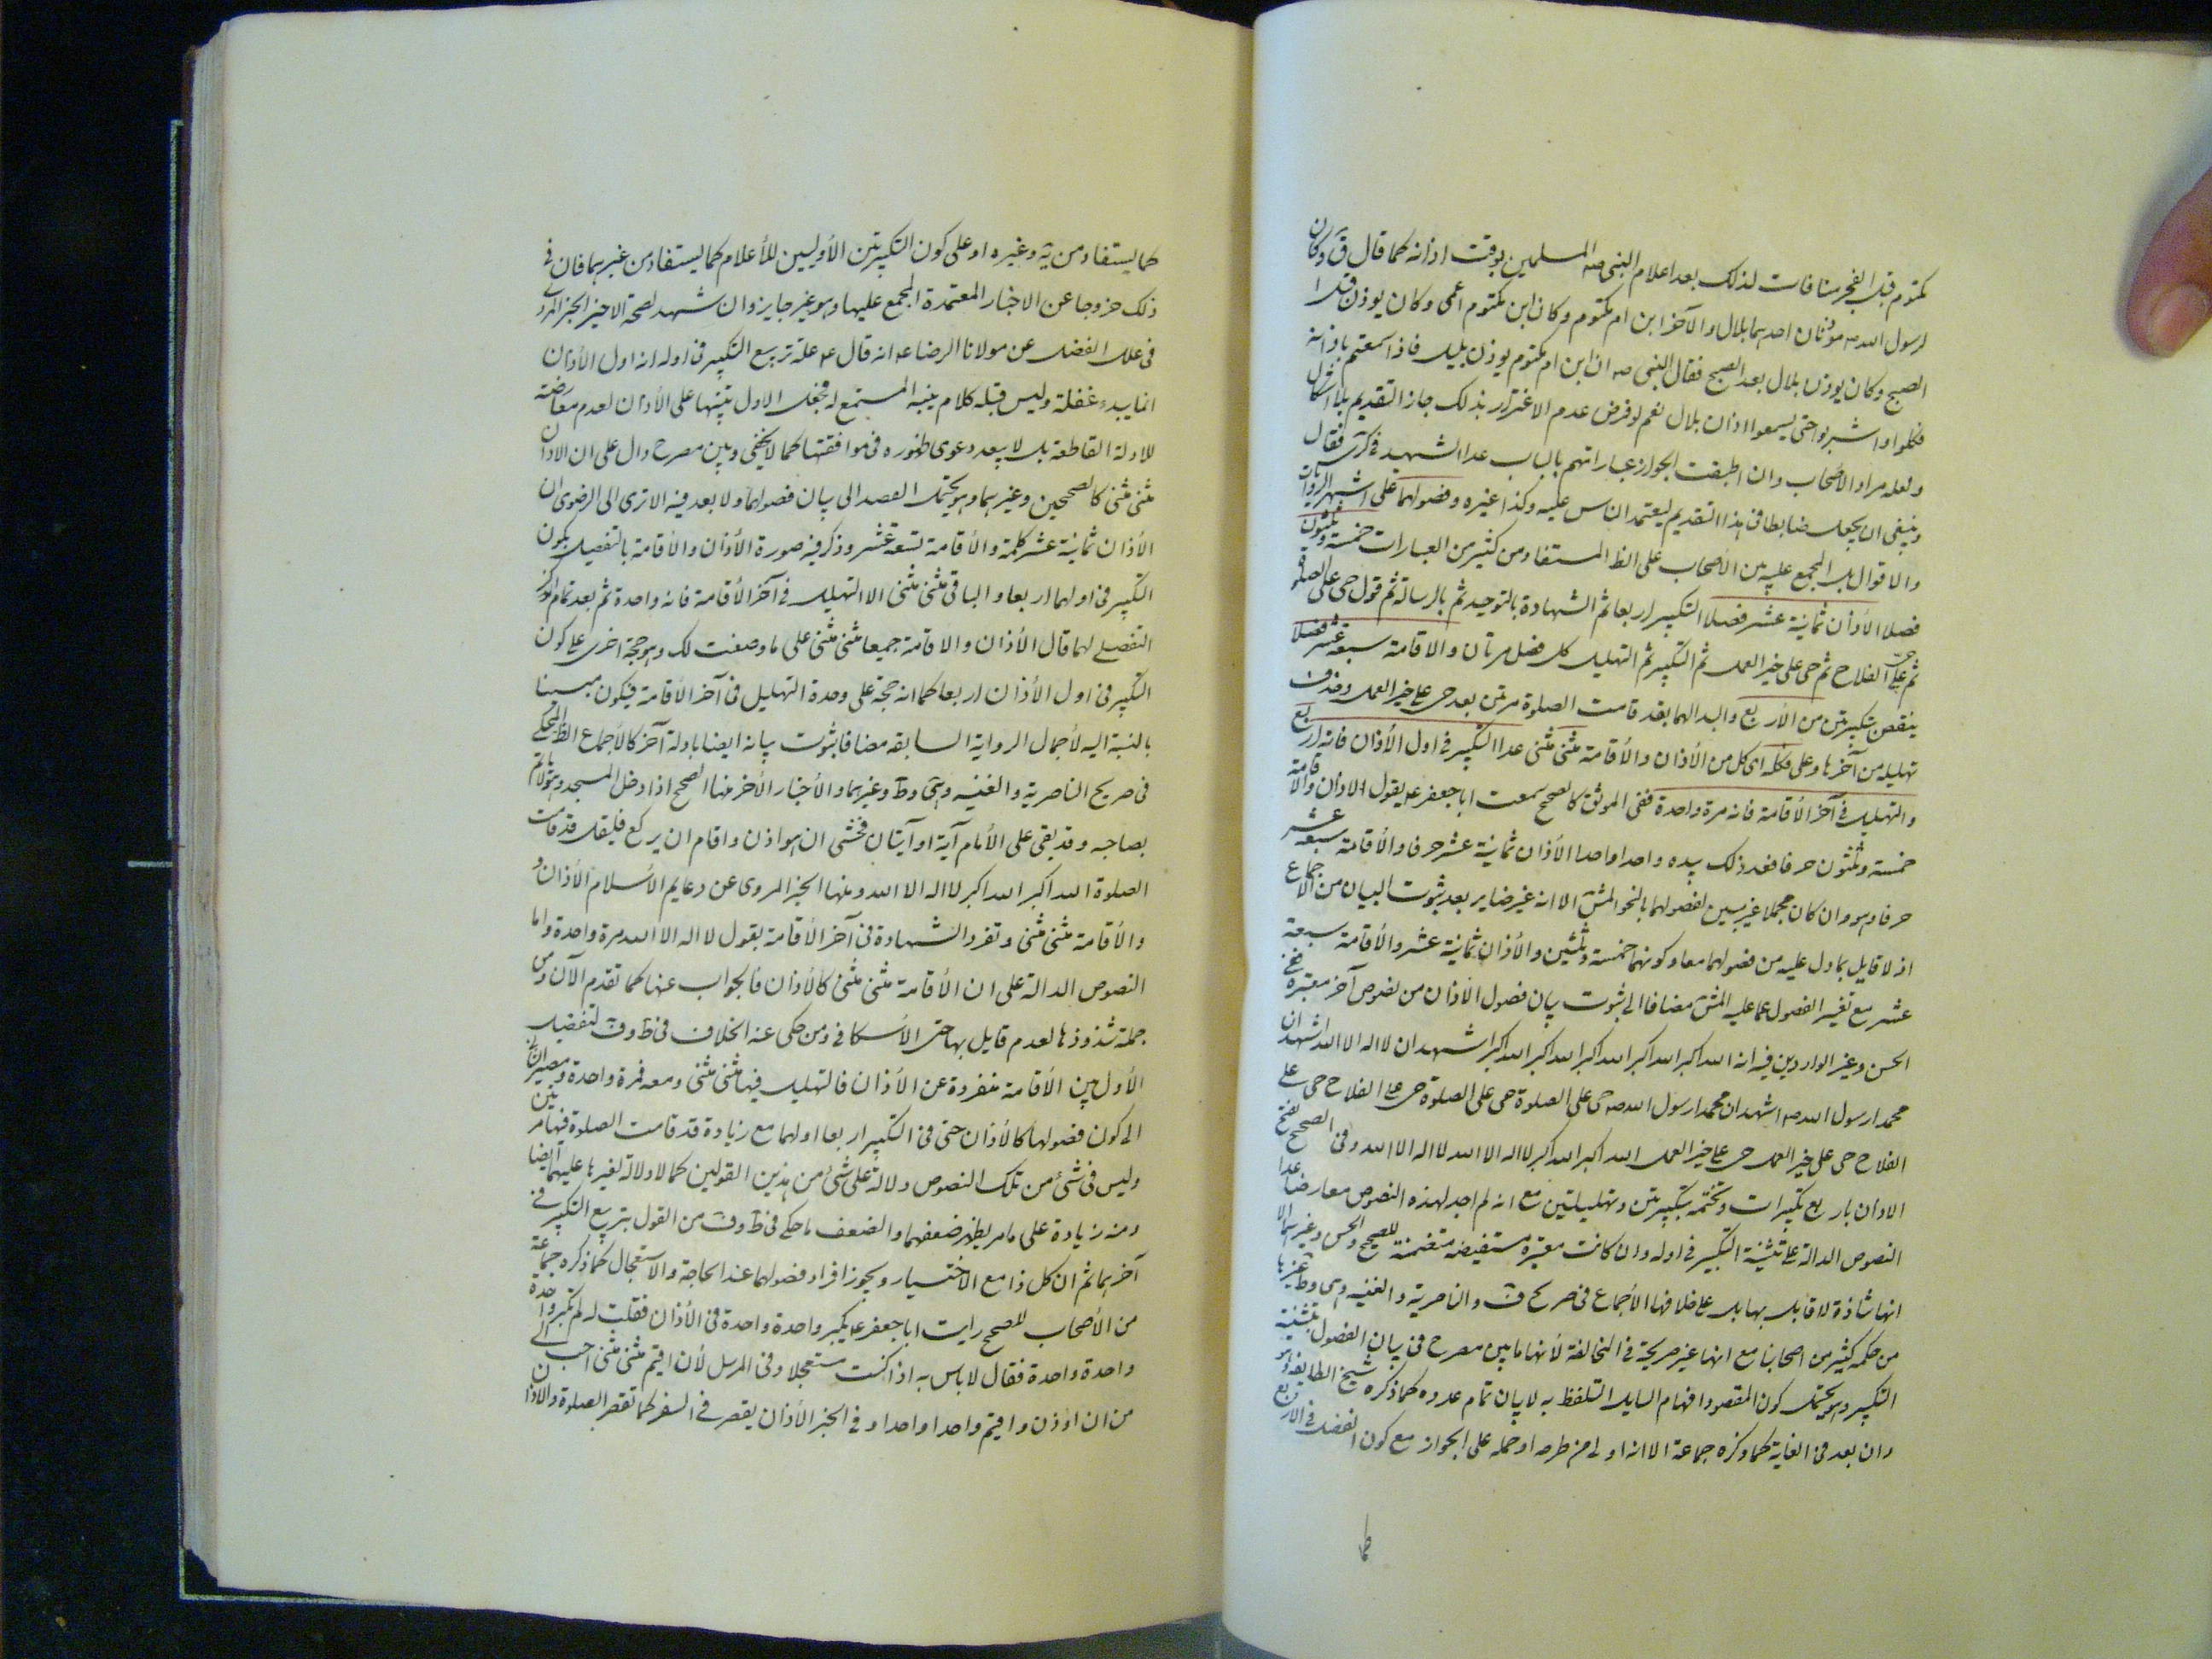 مكتوم قبل الفجر منافات لذلك بعد اعلام النبي صه المسلمين بوقت اذانه كما قال ق وكان
لرسول الله صه مؤذنان احدهما بلال والآخر ابن ام مكتوم وكان ابن مكتوم اعمى وكان يوذن قبل
الصبح وكان يوذن بلال بعد الصبح فقال النبي صه ان ابن ام مكتوم يوذن بليل فاذا سمعتم باذانه
فكلوا واشربوا حتى يسمعوا اذان بلال نعم لو فرض عدم الاغترار بذلك جاز التقديم بلا اشكال
ولعله مراد الاصحاب وان اطبقت الجواز عباراتهم بالباب عدا الشهيد في كرى فقال
وينبغي ان يجعل ضابطا في هذا التقديم ليعتمد الناس عليه وكذا غيره وفصولهما على اشهر الروايات
والاقوال بل المجمع عليه بين الأصحاب على الظ المستفاد من كثير من العبارات خمسة وثلثون
فصلا الأذان ثمانية عشر فصلا التكبير اربعا ثم الشهادة بالتوحيد ثم بالرسالة ثم قول حي على الصلوة
ثم حي على الفلاح ثم حي على خير العمل ثم التكبير ثم التهليل كل فصل مرتان والاقامة سبعة عشر فصلا
ينقص تكبيرتين من الأربع والبدالهما بقد قامت الصلوة مرتين بعد حي على خير العمل وحذف
تهليله من آخرها وعلى فكله اى كل من الأذان والأقامة مثنى مثنى عدا التكبير في اول الأذان فانه اربع
والتهليل في آخر الأقامة فانه مرة واحدة ففي الموثق كالصحيح سمعت ابا جعفر ع يقول الاذان والاقامة
خمسة وثلثون حرفا فعد ذلك بيده واحدا واحدا الأذان ثمانية عشر حرفا والأقامة سبعة عشر
حرفا وهو وان كان مجملا غير مبين لفصولهما بالنحو المش الا انه غير ضاير بعد ثبوت البيان من الاجماع
اذ لا قايل بما دل عليه من فصولهما معا وكونهما خمسة وثلثين والأذان ثمانية عشر والأقامة سبعة
عشر مع تغير الفصول عما عليه المش مضافا الى ثبوت بيان فصول الأذان من نصوص آخر معتبرة ففي
الحسن وغير الواردين فيه انه الله اكبر الله اكبر الله اكبر الله اكبر اشهد ان لا اله الا الله اشهد ان
محمدا رسول الله صه اشهد ان محمدا رسول الله صه حي على الصلوة حي على الصلوة حي على الفلاح حي على
الفلاح حي على خير العمل حي على خير العمل الله اكبر الله اكبر لا اله الا الله لا اله الا الله وفي الصحيح تفتح
الاذان باربع تكبيرات وتختمه بتكبيرتين وتهليلتين مع انه لم اجد لهذه النصوص معارضا عدا
النصوص الدالة على تثنية التكبير في اوله وان كانت معتبرة مستفيضة متضمنة للصحيح والحسن وغيرهما الا
انها شاذة لا قايل بها بل على خلافها الأجماع في صريح ف والناصرية والغنيه وهى وط وغيرها
من حكمه كثير من اصحابنا مع انها غير صريحة في المخالفة لأنها ما بين مصرح في بيان الفصول بتثنية
التكبير وهو يحتمل كون المقصود افهام السايل التلفظ به لا بيان تمام عدده كما ذكره شيخ الطايفة وهو
وان بعد في الغاية كما ذكره جماعة الا انه اولى من طرحه او حمله على الجواز مع كون الفضل في الاربع
كما
كما يستفاد من ية وغيره او على كون التكبيرتين الأوليين للأعلام كما يستفاد من غيرهما فان في
ذلك خروجا عن الاخبار المعتمدة المجمع عليها وهو غير جايز وان شهد لصحة الاخير الخبر المروى
في علل الفضل عن مولانا الرضا ع انه قال ع علة تربيع التكبير في اوله انه اول الأذان
انما يبدء غفلة وليس قبله كلام ينبه المستمع له فجعل الاول تنبيها على الأذان لعدم معارضته
للادلة القاطعة بل لا يبعد دعوى ظهوره في موافقتها كما لا يخفى وبين مصرح دال على ان الاذان
مثنى مثنى كالصحيحين وغيرهما وهو يحتمل القصد الى بيان فصولهما ولا بعد فيه الا ترى الى الرضوى ان
الأذان ثمانية عشر كلمة والأقامة تسعة عشر وذكر فيه صورة الأذان والأقامة بالتفصيل بكون
التكبير في اولهما اربعا والباقي مثنى مثنى الا التهليل في آخر الأقامة فانه واحدة ثم بعد تمام الذكر
التفصيلي لهما قال الأذان والاقامة جميعا مثنى مثنى على ما وصفت لك وهو حجة اخرى على كون
التكبير في اول الأذان اربعا كما انه حجة على وحدة التهليل في آخر الأقامة فيكون مبينا
بالنسبة اليه لأجمال الرواية السابقة مضافا بثبوت بيانه ايضا بادلة آخر كالأجماع الظ المحكى
في صريح الناصرية والغنيه وهى وط وغيرهما والأخبار الأخر منها الصحيح اذا دخل المسجد وهو لا ياتم
بصاحبه وقد بقى على الأمام آية او آيتان فخشى ان هو اذن واقام ان يركع فليقل قد قامت
الصلوة الله اكبر الله اكبر لا اله الا الله ومنها الخبر المروى عن دعايم الاسلام الأذان و
والأقامة مثنى مثنى وتفرد الشهادة في آخر الأقامة بقول لا اله الا الله مرة واحدة واما
النصوص الدالة على ان الأقامة مثنى مثنى كالأذان فالجواب عنها كما تقدم الآن ومن
جملة شذوذها لعدم قايل بها حتى الأسكافي ومن حكى عنه الخلاف في ط وف لتفصيل
الأول بين الأقامة منفردة عن الأذان فالتهليل فيها مثنى مثنى ومعه فمرة واحدة ومصير الثانى
الى كون فصولها كالأذان حتى في التكبير اربعا اولهما مع زيادة قد قامت الصلوة فيها مرتين
وليس في شئ من تلك النصوص دلالة على شئ من هذين القولين كما لا دلالة لغيرها عليهما ايضا
ومنه زيادة على ما مر يظهر ضعفهما والضعف ما حكى في ط وف من القول بتربيع التكبير في
آخرهما ثم ان كل ذا مع الاختيار ويجوز افراد فصولهما عند الحاجة والاستعجال كما ذكره جماعة
من الأصحاب للصحيح رايت ابا جعفر ع يكبر واحدة واحدة في الأذان فقلت له لم تكبر واحدة
واحدة واحدة فقال لا باس به اذا كنت مستعجلا وفي المرسل لأن اقيم مثنى مثنى احب الى
من ان اؤذن واقيم واحدا واحدا و في الخبر الأذان يقصر في السفر كما تقصر الصلوة والاذان